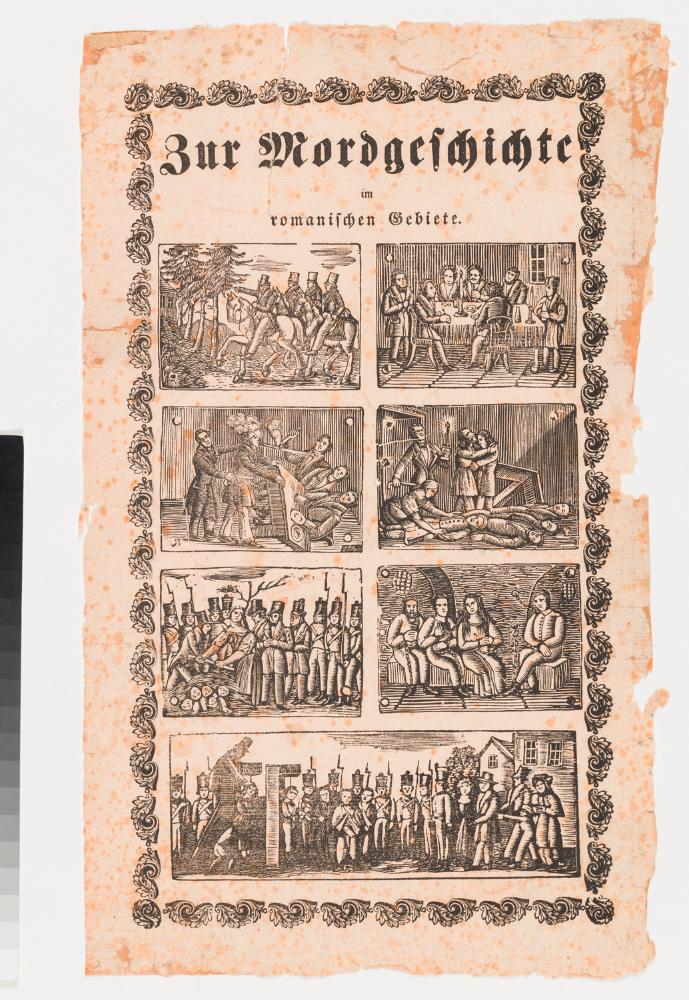 Zur Mordgeschichte
im
romanischen Gebiete.